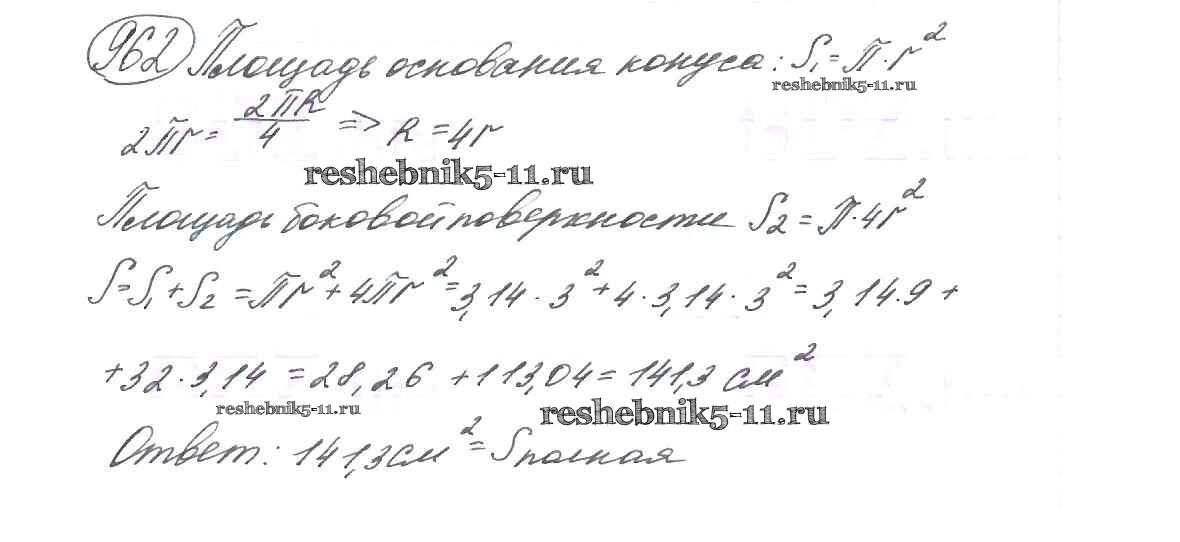 962 Площадь основания конуса: S₁=π·r²
reshebnik5-11.ru
2πr = 2πR/4 => R = 4r
reshebnik5-11.ru
Площадь боковой поверхности S₂ = π·4r²
S=S₁+S₂ = πr²+4πr²=3,14·3²+4·3,14·3²=3,14·9+
+32·3,14 =28,26 +113,04=141,3 см²
reshebnik5-11.ru
reshebnik5-11.ru
Ответ: 141,3см²=Sполная